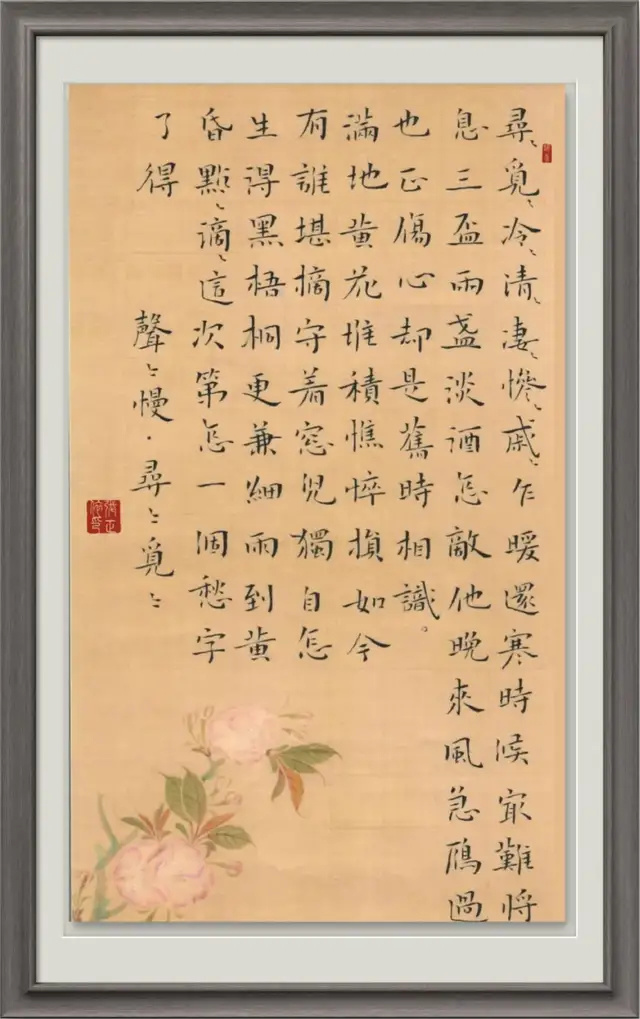 尋〻覓〻冷〻清〻凄〻慘〻戚〻乍暖還寒時候冣難將
息三盃兩盞淡酒怎敵他晚來風急鴈過
也正傷心却是舊時相識。
滿地黄花堆積憔悴損如今
有誰堪摘守着窓兒獨自怎
生得黑梧桐更兼細雨到黄
昏點〻滴〻這次第怎一個愁字
了得
聲〻慢·尋〻覓〻